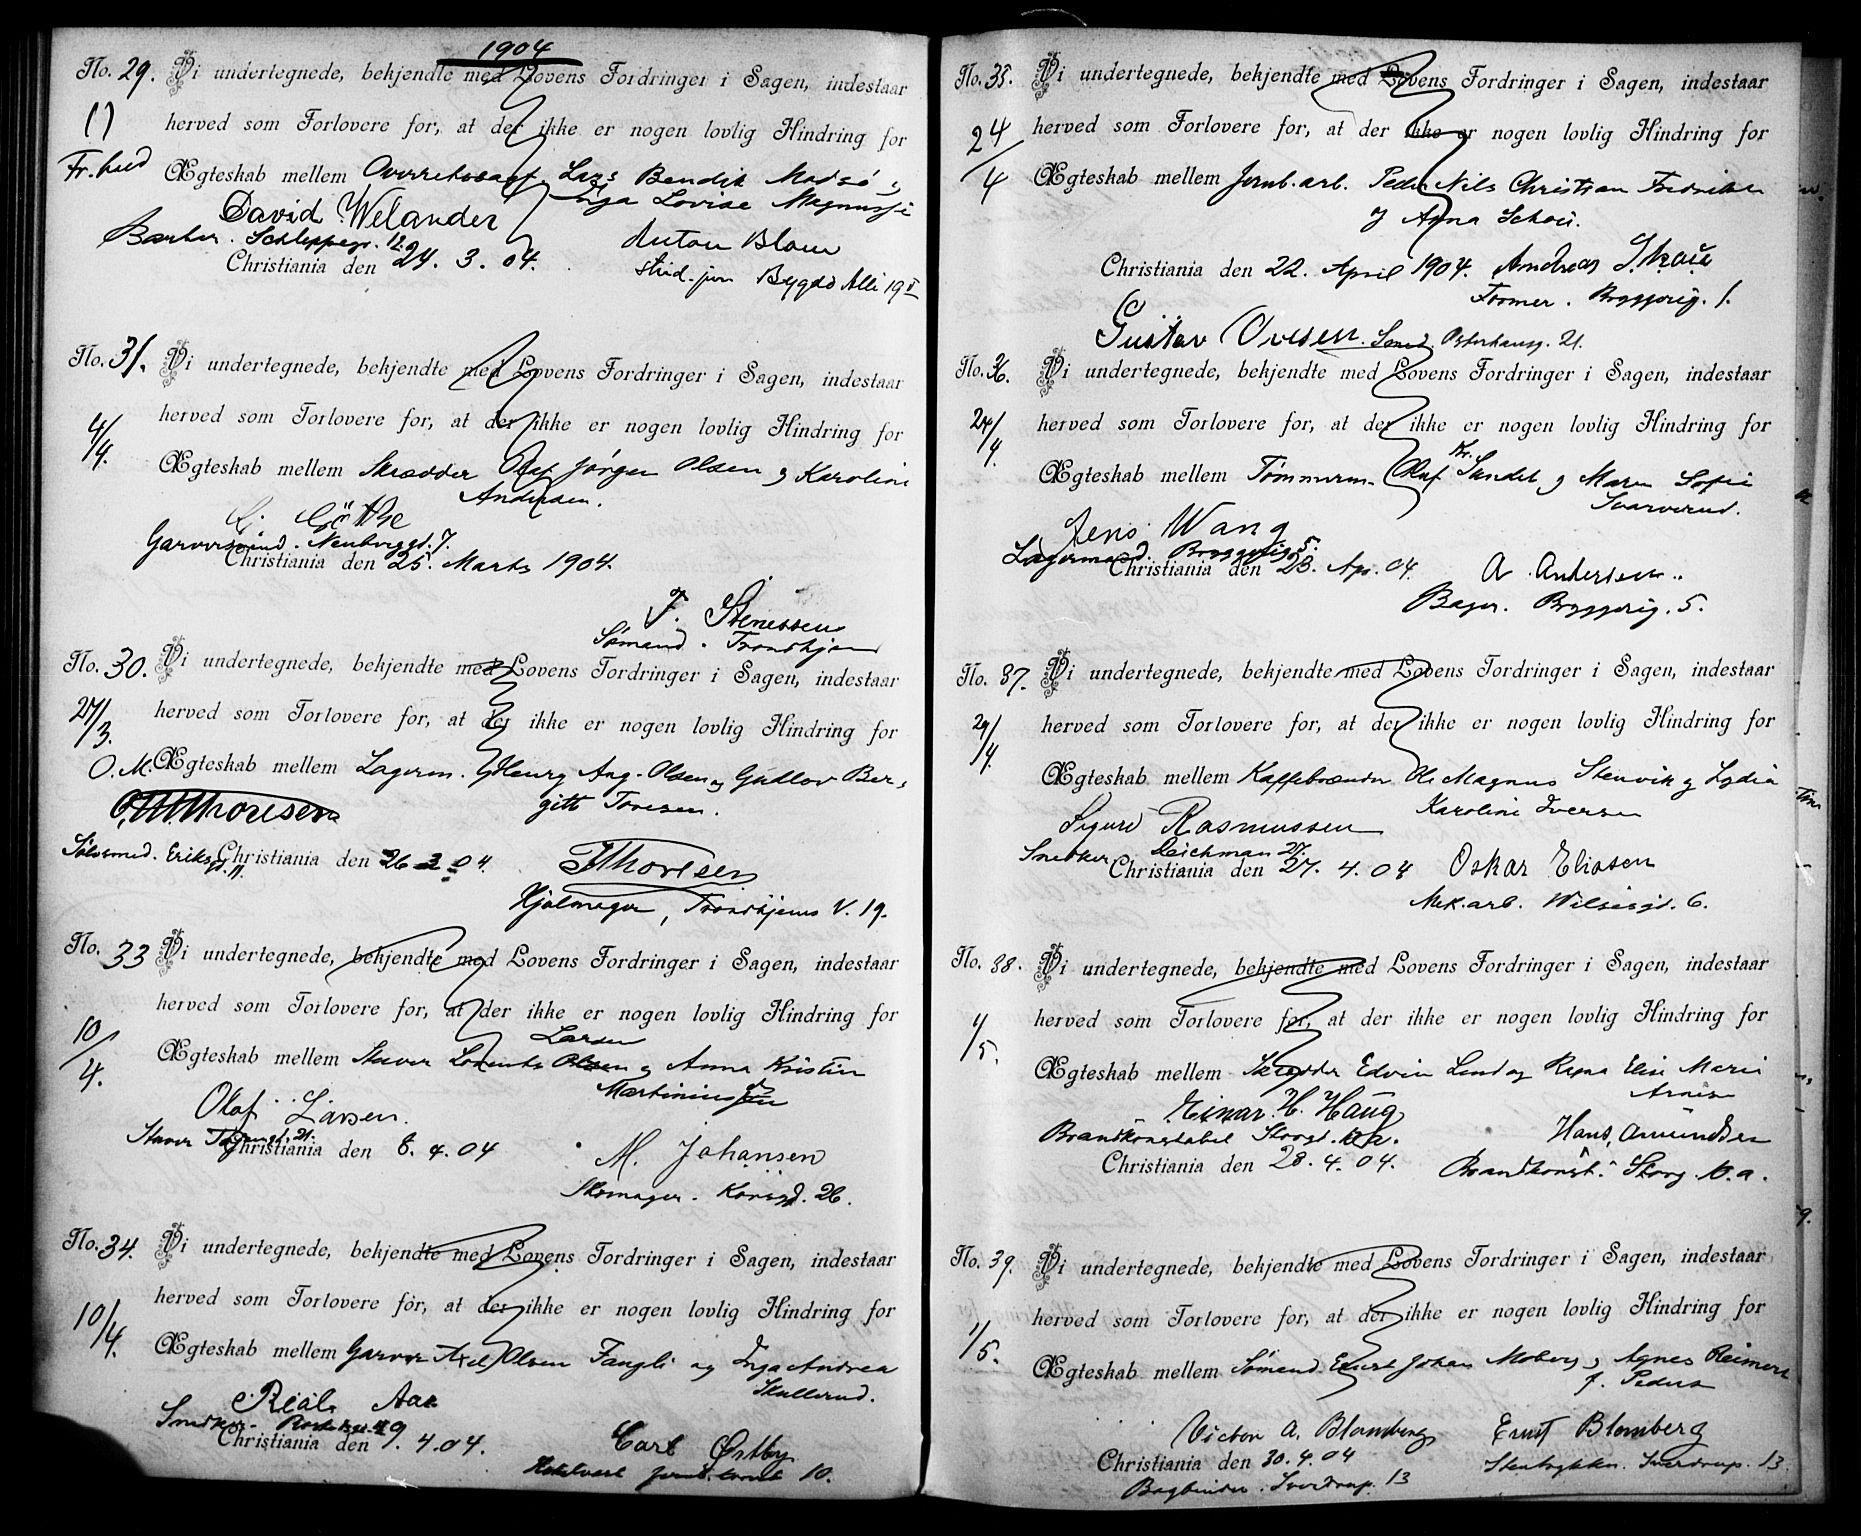 1904
No. 29. Vi undertegnede, bekjendte med Lovens Fordringer i Sagen, indestaar
herved som Forlovere for, at der ikke er nogen lovlig Hindring for
Ægteskab mellem Overretssagf. Lars Bendik Madsö
Inga Lovise
David Welander
Anton Blom
Barber. Schleppegr. 12.
Christiania den 24. 3. 04.
Stud. jur Bygdö Allé 19 II
No. 31. Vi undertegnede, bekjendte med Lovens Fordringer i Sagen, indestaar
4/4. herved som Forlovere for, at der ikke er nogen lovlig Hindring for
Ægteskab mellem Skrædder Olaf Jörgen Olsen og Karoline
Andersen.
Göthe
Garversvend. Neuberggd. 7.
Christiania den 25. Marts 1904.
F. Stenessen
Sömand. Trondhjem
No. 30. Vi undertegnede, bekjendte med Lovens Fordringer i Sagen, indestaar
27/3. herved som Forlovere for, at der ikke er nogen lovlig Hindring for
O. M. Ægteskab mellem Lagerm. Henry Aug. Olsen og Gudlov Ber-
gitte Toresen.
O. M. Thoresen
Sölvsmed. Eriksgd. 11.
Christiania den 26 3 04.
Thoresen
Hjulmager, Trondhjems V. 19.
No. 33 Vi undertegnede, bekjendte med Lovens Fordringer i Sagen, indestaar
10/4. herved som Forlovere for, at der ikke er nogen lovlig Hindring for
Larsen
Ægteskab mellem Stuver Lorents Olsen og Anna Kristine
Martiniussen
Olaf Larsen.
Stuver
Christiania den 8. 4. 04
M. Johansen
Skomager. Korsgd. 26.
No. 34. Vi undertegnede, bekjendte med Lovens Fordringer i Sagen, indestaar
10/4. herved som Forlovere for, at der ikke er nogen lovlig Hindring for
Ægteskab mellem Garver Axel Olsen Fangli og Inga Andrea
Skullerud.
Aas
Snedker.
Christiania den 9. 4. 04.
Carl Østby
10.
No. 35. Vi undertegnede, bekjendte med Lovens Fordringer i Sagen, indestaar
24/4 herved som Forlovere for, at der ikke er nogen lovlig Hindring for
Ægteskab mellem Jernb. arb. Peder Nils Christian Fredriksen
og Anna Schøi.
Christiania den 22. April 1904. Andreas
Former. Bryggerig. 1.
Gustav Ovesen. Smed. Osterhausg. 21.
No. 36. Vi undertegnede, bekjendte med Lovens Fordringer i Sagen, indestaar
24/4 herved som Forlovere for, at der ikke er nogen lovlig Hindring for
Kr.
Ægteskab mellem Tömmerm. Olaf Sundet og Maren Sofie
Svarverud.
Jens Wang
Lagermand. Bryggerig 5.
Christiania den 23. Apr. 04.
A. Andersen.
Bager. Bryggerig. 5.
No. 37. Vi undertegnede, bekjendte med Lovens Fordringer i Sagen, indestaar
29/4. herved som Forlovere for, at der ikke er nogen lovlig Hindring for
Ægteskab mellem Kaffebrænder Ole Magnus Stenvik og Lydia
Karoline Iversen
Sigurd Rasmussen
Snedker Deichman 27.
Christiania den 27. 4. 04
Oskar Eliasen
Mek. arb. Wilsesgt. 6.
No. 38. Vi undertegnede, bekjendte med Lovens Fordringer i Sagen, indestaar
1/5. herved som Forlovere for, at der ikke er nogen lovlig Hindring for
Ægteskab mellem Skrædder Edvin Lund og Ragna Elise Marie
Einar. H. Haug
Brandkonstabel Storgd. 10 a.
Hans. Amundsen
Christiania den 28. 4. 04.
Brandkonst. Storg. 10. a.
No. 39. Vi undertegnede, bekjendte med Lovens Fordringer i Sagen, indestaar
1/5. herved som Forlovere for, at der ikke er nogen lovlig Hindring for
Ægteskab mellem Sömand Evert Johan Moberg og Agnes Reimert
f. Peders
Victor A. Blomberg
Ernst Blomberg
Christiania den 30. 4. 04
Stentrykker. Sverdrup. 13
Bogbinder. Sverdrup. 13